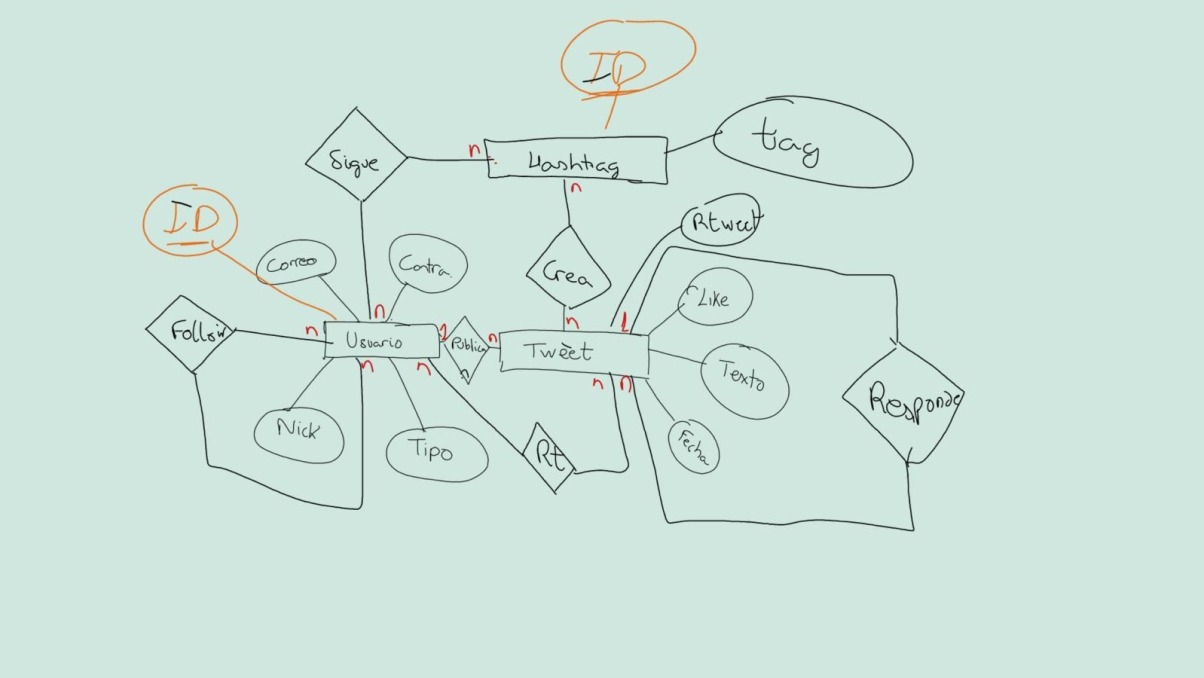 ID
tag
Sigue
n
Hashtag
n
ID
Rtweet
Correo
Contra.
Crea
Like
n
n
1
Follow
n
Usuario
1
Publica
n
Tweet
n
n
n
n
Texto
Responde
Nick
Tipo
Rt
Fecha